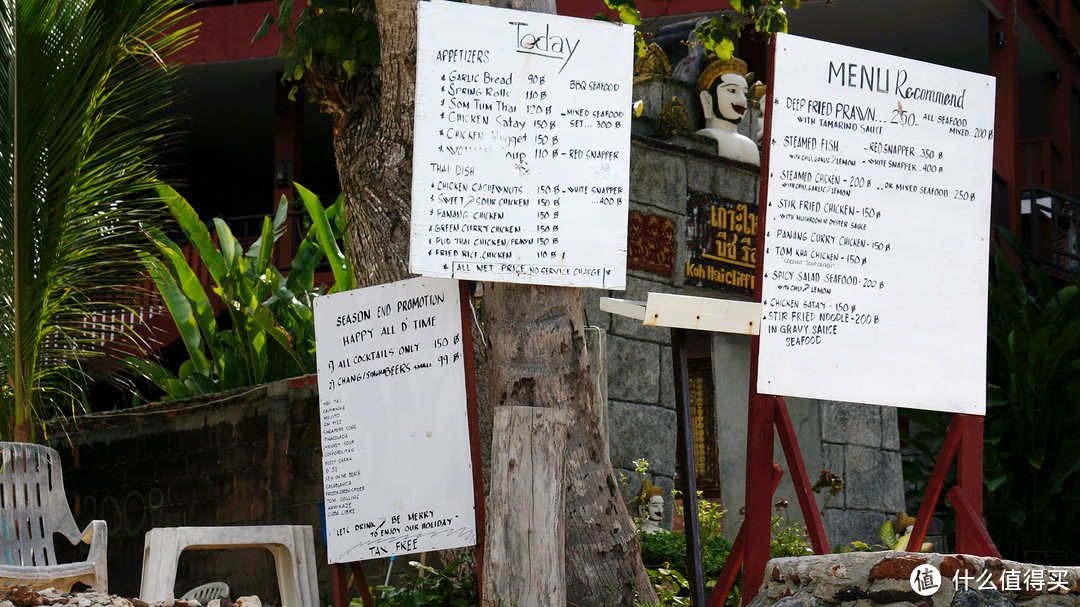 Today
APPETIZERS
* GARLIC BREAD 90 ฿
* SPRING ROLLS 110 ฿
* SOM TUM THAI 120 ฿
* CHICKEN SATAY 150 ฿
* CHICKEN NUGGET 150 ฿
110 ฿
BBQ SEAFOOD
- MIXED SEAFOOD
SET... 300 ฿
- RED SNAPPER
- WHITE SNAPPER
...400 ฿
THAI DISH
* CHICKEN CASHEWNUTS 150 ฿
* SWEET & SOUR CHICKEN 150 ฿
* PANANG CHICKEN 150 ฿
* GREEN CURRY CHICKEN 150 ฿
* PUD THAI CHICKEN/PRAWN 150 ฿
* FRIED RICE.CHICKEN 110 ฿
* ALL NET PRICE NO SERVICE CHARGE *
MENU Recommend
* DEEP FRIED PRAWN... 250
WITH TAMARIND SAUCE
ALL SEAFOOD
MIXED 200 ฿
STEAMED FISH - RED SNAPPER..350 ฿
WITH CHILI, GARLIC & LEMON - WHITE SNAPPER...400 ฿
STEAMED CHICKEN - 200 ฿ ..OR MIXED SEAFOOD..250 ฿
WITH CHILI, GARLIC & LEMON
STIR FRIED CHICKEN - 150 ฿
WITH MUSHROOM N OYSTER SAUCE
PANANG CURRY CHICKEN - 150 ฿
TOM KHA CHICKEN - 150 ฿
"COCONUT SOUP CHICKEN"
SPICY SALAD SEAFOOD - 200 ฿
WITH CHILI & LEMON
CHICKEN SATAY - 150 ฿
STIR FRIED NOODLE - 200 ฿
IN GRAVY SAUCE
SEAFOOD
Koh Haicliff
SEASON END PROMOTION
HAPPY ALL D' TIME
1) ALL COCKTAILS ONLY 150 ฿
2) CHANG/SINGHA BEERS SMALL 99 ฿
MAI TAI
CAIPIRINHA
MOJITO
GIN FIZZ
SINGAPORE SLING
PINACOLADA
WHISKEY SOUR
COSMOPOLITAN
B 52
SEX ON THE BEACH
CASABLANCA
TOM COLLINS
KAMIKAZE
CUBA LIBRE
"LETS DRINK & BE MERRY
TO ENJOY OUR HOLIDAY"
TAX FREE
值 什么值得买